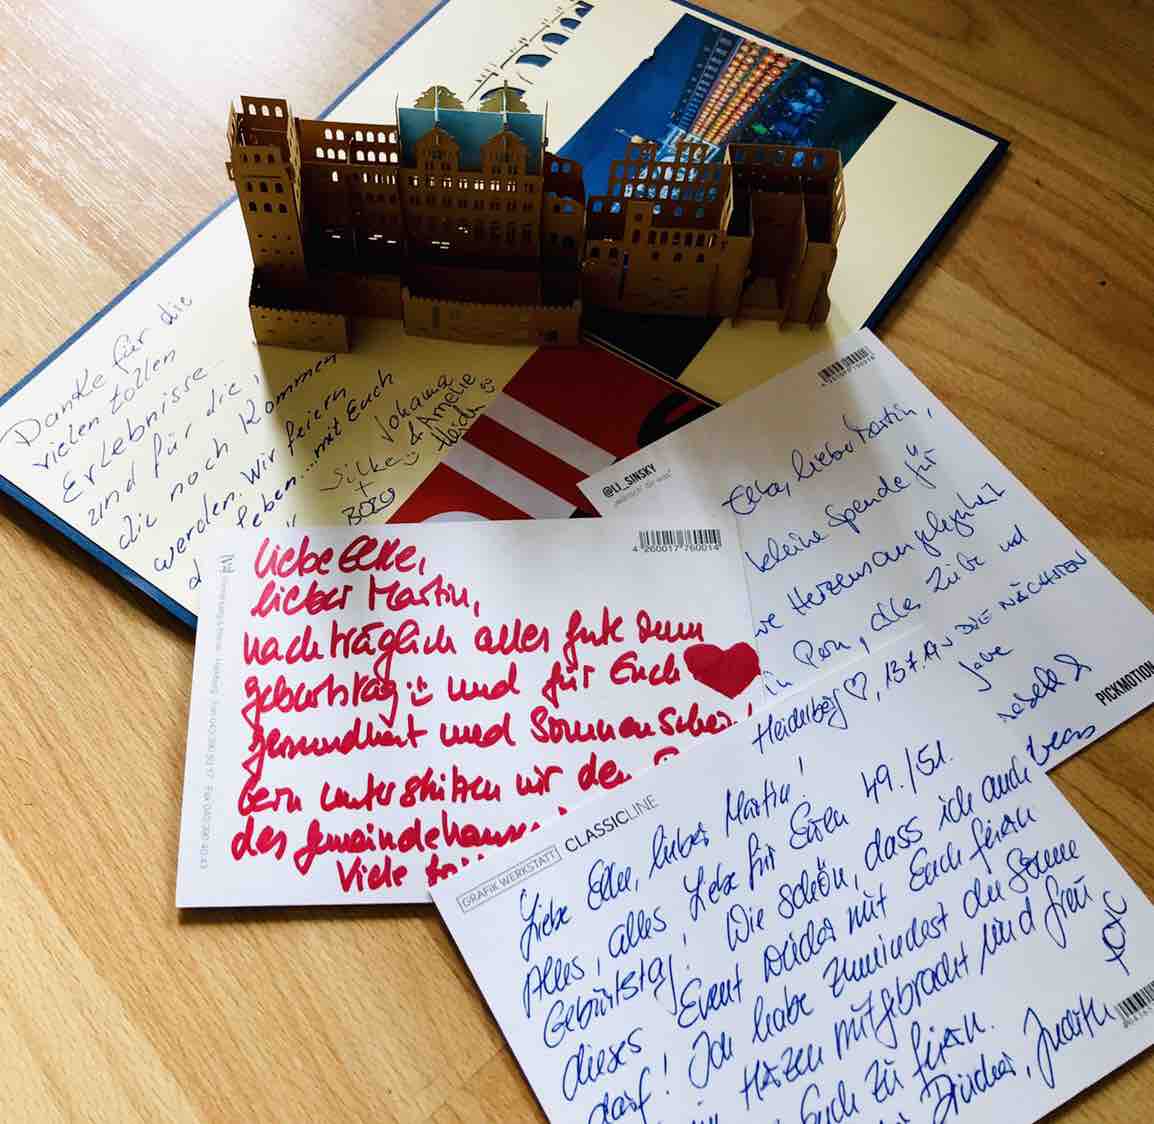 Danke für die
vielen tollen
Erlebnisse...
und für die,
die noch kommen
werden. Wir feiern
Leben... mit Euch
Johanna
& Amelie
Silke
+
BOZO
@LI_SINSKY
lieber Martin,
kleine Spende für
Herzensangelegenheit
alles Liebe und
AN DIE NÄCHSTEN
Jahre
PICKMOTION
4 260017 760014
Liebe Elke,
lieber Martin,
nachträglich alles Gute zum
Geburtstag und für Euch
Gesundheit und Sonnenschein!
Gern unterstützen wir den
des Gemeindehauses
Viele
GRAFIK WERKSTATT CLASSICLINE
Heidelberg ♡, 13.7.
Liebe Elke, lieber Martin!
Alles, alles Liebe für Euren 49./51.
Geburtstag! Wie schön, dass ich auch
dieses Event wieder mit Euch feiern
darf! Ich habe zumindest die Sonne
im Herzen mitgebracht und freu
Euch zu feiern.
Drücker, Judith